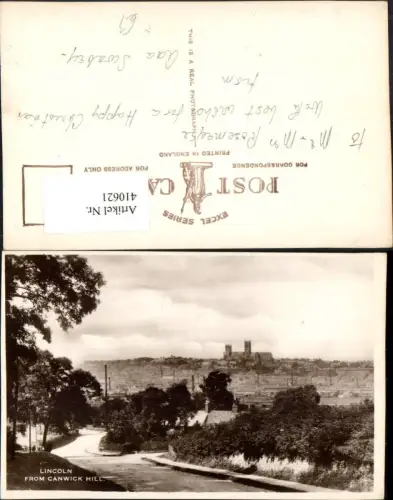 To
Mr & Mrs Rosemeyre
With best wishes for a
Happy Christmas
from
Ada Swabey.
POST CARD
EXCEL SERIES
FOR CORRESPONDENCE
PRINTED IN ENGLAND
FOR ADDRESS ONLY
THIS IS A REAL PHOTOGRAPH
Artikel Nr.
410621
LINCOLN
FROM CANWICK HILL.